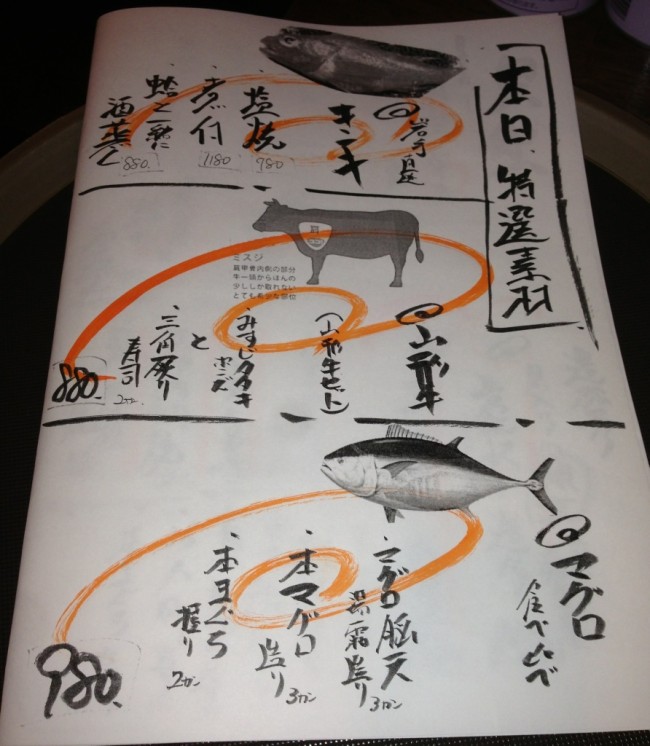 本日、特選素材
岩手直送
キンキ
・塩焼 980
・煮付 1180
・蛤と一緒に
酒蒸し 880.
ミスジ
肩甲骨内側の部分
牛一頭からほんの
少ししか取れない
とても希少な部位
山形牛
(山形牛セット)
・みすじタタキ
ポン酢
と
・三角炙り
寿司 2カン
880.
マグロ
食べくらべ
・マグロ脳天
湯霜造り 3カン
・本マグロ
造り 3カン
・本まぐろ
握り 2カン
980.